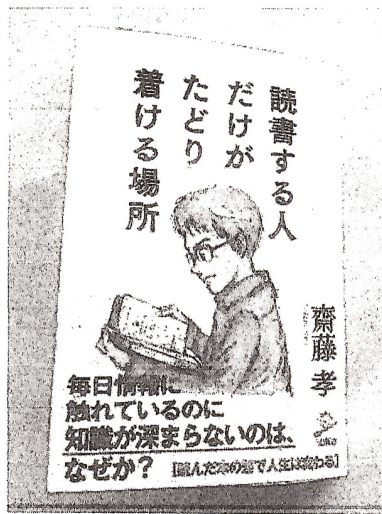 読書する人
だけが
たどり
着ける場所
齋藤 孝
毎日情報に
触れているのに
知識が深まらないのは、
なぜか?
【読んだ本の数で人生は変わる】